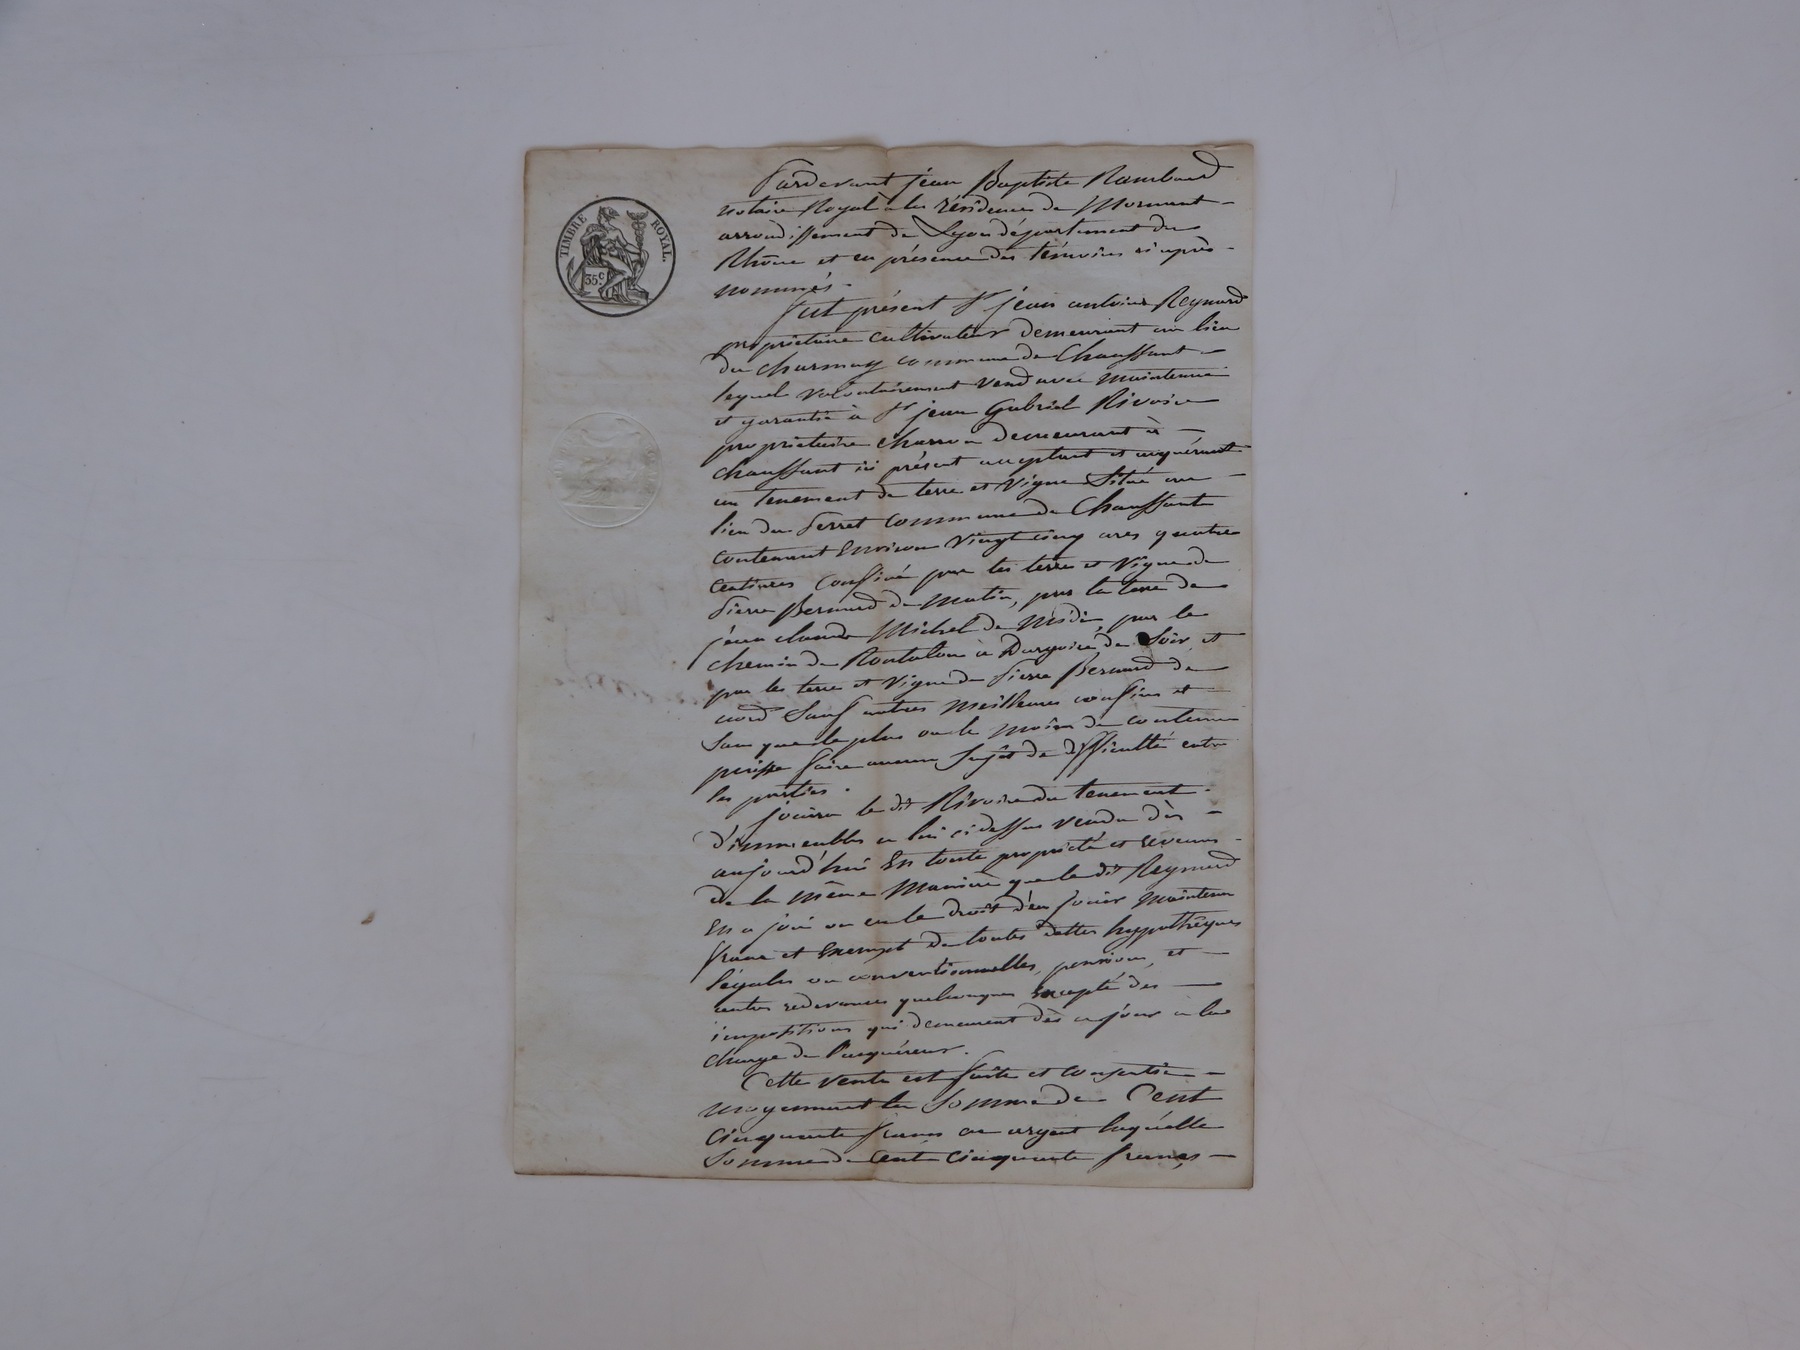 TIMBRE ROYAL.
35 c.
Pardevant jean Baptiste Rambaud
notaire Royal à la résidence de Mornant
arrondissement de Lyon département du
Rhône et en présence des témoins ci après
nommés.
Fut présent Sr jean antoine Reynard
propriétaire cultivateur demeurant au lieu
du charmay commune de Chaussant
lequel volontairement vend avec maintenue
et garantie à Sr jean Gabriel Rivoire
propriétaire charron demeurant à
chaussant ici présent acceptant et acquérant
un tenement de terre et vigne Situé au
lieu du Perret commune de Chaussant
contenant Environ vingt cinq ares quatre
centiares confiné par les terre et vigne de
Pierre Bernard de matin, par la terre de
jean claude Michel de midi, par le
chemin de Rontalon à Dargoire de Soir, et
par les terre et vigne de Pierre Bernard de
nord Sauf autres meilleurs confins et
Sans que le plus ou le moins de contenue
puisse faire aucun Sujet de difficulté entre
les parties.
jouira le dit Rivoire du tenement
d'immeubles a lui ci dessus vendu dès
aujourd'hui En toute propriété et revenus
de la même manière que le dit Reynard
En a joui ou eu le droit d'en jouir maintenu
franc et Exempt de toutes dettes hypothèques
légales ou conventionnelles, pensions, et
autres redevances quelconques Excepté des
impositions qui demeurent dès ce jour à la
charge de l'acquéreur.
Cette vente est faite et consentie
moyennant la Somme de Cent
cinquante francs en argent laquelle
Somme de Cent cinquante francs